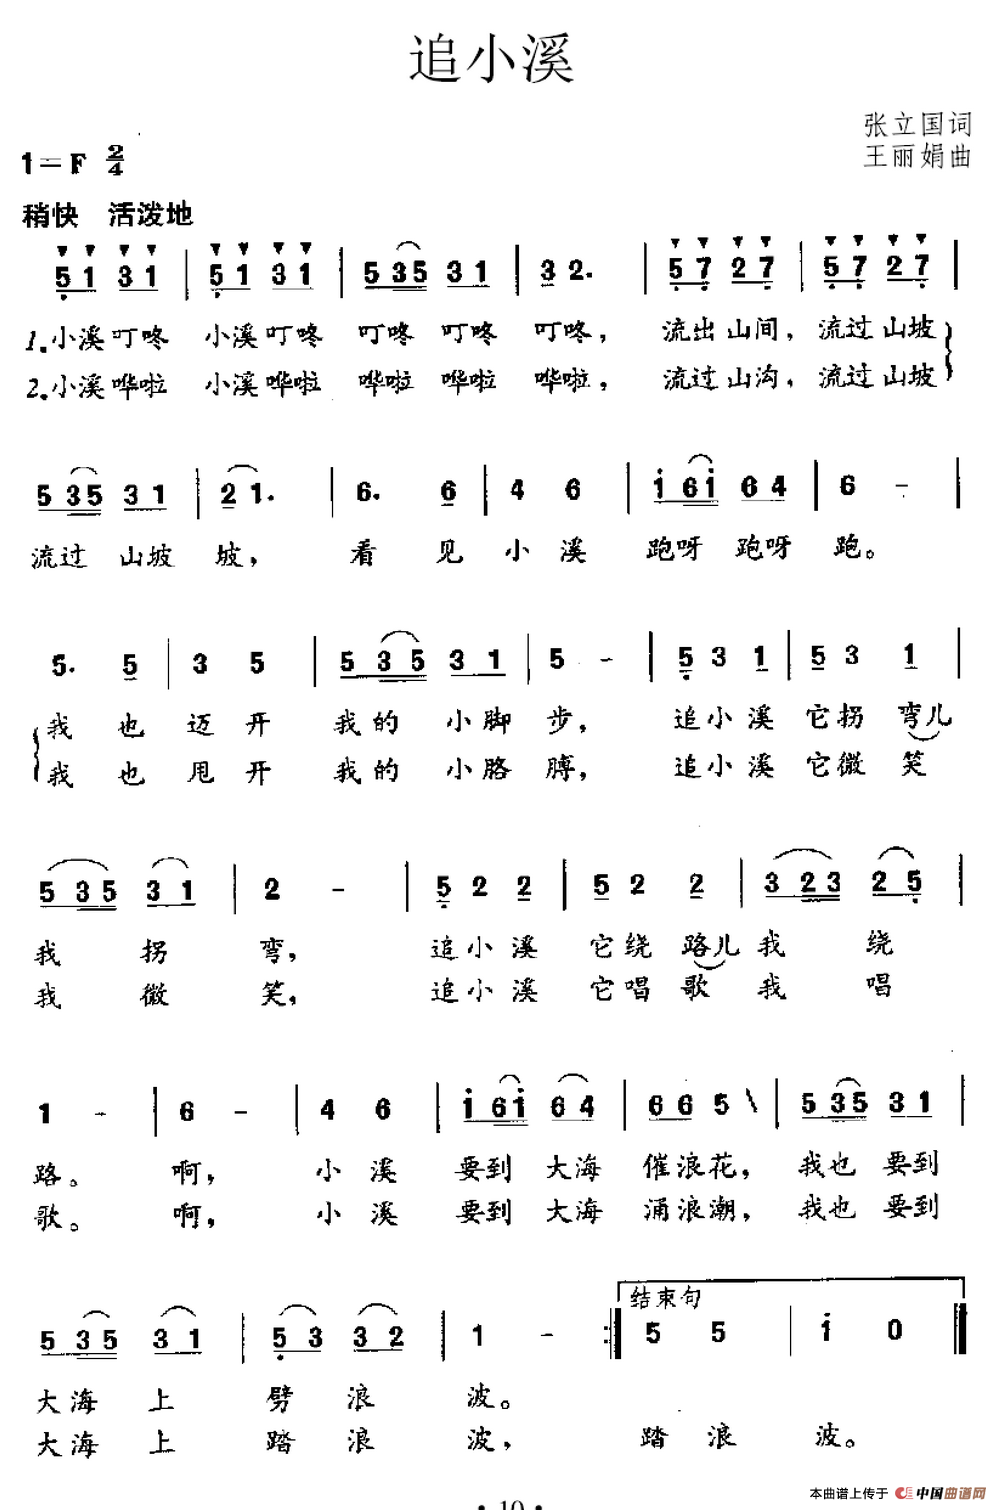 追小溪
张立国词
王丽娟曲
1=F 2/4
稍快 活泼地
5 1 3 1 | 5 1 3 1 | 5 3 5 3 1 | 3 2. | 5 7 2 7 | 5 7 2 7 |
1.小溪叮咚 小溪叮咚 叮咚 叮咚 叮咚，流出山间，流过山坡
2.小溪哗啦 小溪哗啦 哗啦 哗啦 哗啦，流过山沟，流过山坡
5 3 5 3 1 | 2 1. | 6. 6 | 4 6 | i 6 i 6 4 | 6 - |
流过 山坡 坡，看见小溪 跑呀 跑呀 跑。
5. 5 | 3 5 | 5 3 5 3 1 | 5 - | 5 3 1 | 5 3 1 |
我也迈开 我的小脚步，追小溪它拐弯儿
我也甩开 我的小胳膊，追小溪它微笑
5 3 5 3 1 | 2 - | 5 2 2 | 5 2 2 | 3 2 3 2 5 |
我拐弯，追小溪 它绕路儿我绕
我微笑，追小溪 它唱歌我唱
1 - | 6 - | 4 6 | i 6 i 6 4 | 6 6 5 \ | 5 3 5 3 1 |
路。啊，小溪 要到大海 催浪花，我也要到
歌。啊，小溪 要到大海 涌浪潮，我也要到
结束句
5 3 5 3 1 | 5 3 3 2 | 1 - :| 5 5 | i 0 ‖
大海上 劈浪波。
大海上 踏浪波，踏浪波。
• 10 •
本曲谱上传于 中国曲谱网